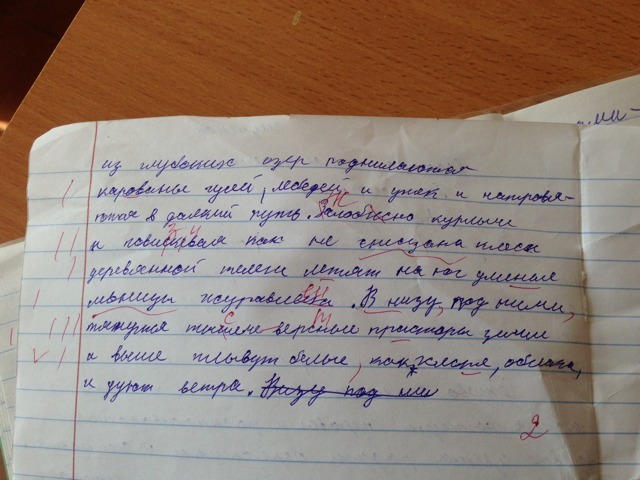 из глубоких озер поднимаются
карованы гусей, лебедей и уток и направля-
ются в далкий путь. Жалобисно курлыча
и повизгивая как не смазана плоск
деревянной телеги летят на юг умелые
маницы журавлей. В низу, под ними,
тянутся тысяче верстные прасторы земли
а выше плывут белые, как хлеся, облака,
и дуют ветра. Внизу под ним
2